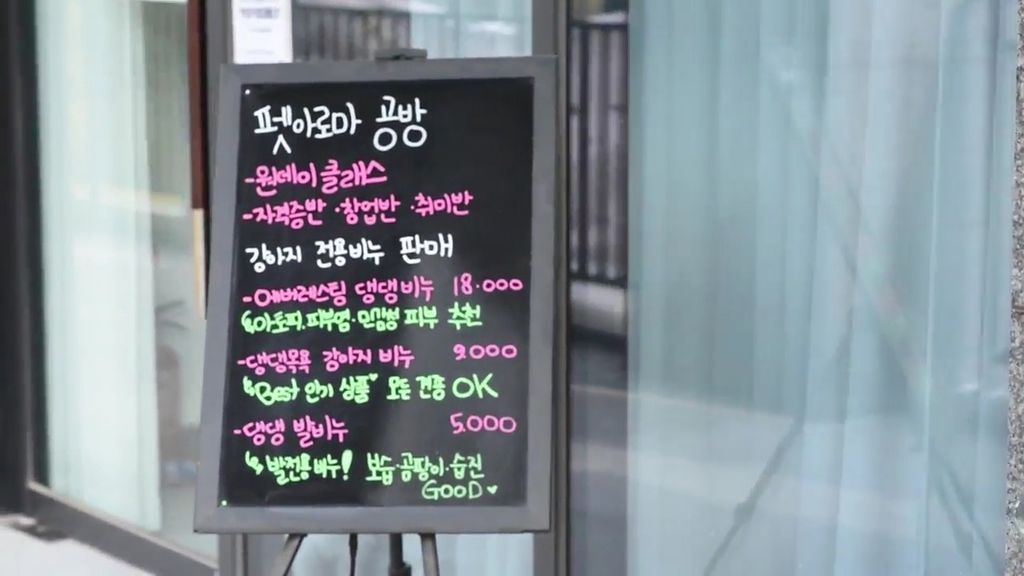 펫아로마 공방
-원데이 클래스
-자격증반 ·창업반 ·취미반
강아지 전용비누 판매
-에버레스팅 댕댕비누 18.000
↳아토피.피부염·민감성 피부 추천
-댕댕목욕 강아지 비누 9.000
↳Best 인기 상품♥ 모든 견종 OK
-댕댕 발비누 5.000
↳발전용비누! 보습·곰팡이·습진
GOOD♥